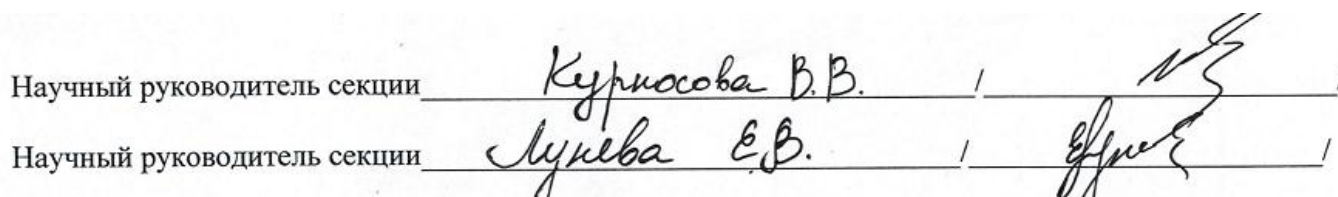 Научный руководитель секции Курносова В.В. / /
Научный руководитель секции Лунева Е.В. / /